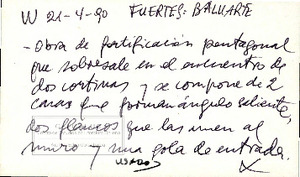 W 21-4-90 FUERTES: BALUARTE
-Obra de fortificación pentagonal
que sobresale en el encuentro de
dos cortinas y se compone de 2
caras que forman ángulo saliente,
dos flancos que las unen al
muro y una gola de entrada.
USADO